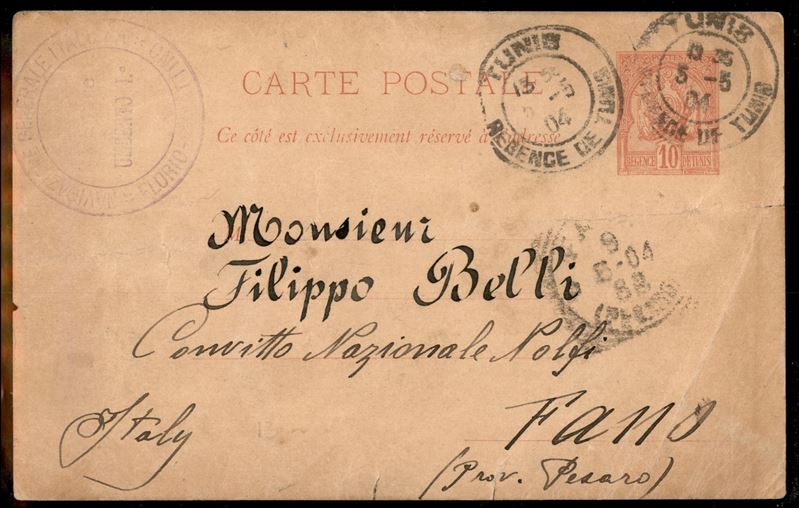 CARTE POSTALE
Ce côté est exclusivement réservé à l'adresse
TUNIS
REGENCE DE TUNIS
04
TUNIS
5 -5
04
REGENCE DE TUNIS
10
RÉGENCE DE TUNIS
UMBERTO I°
Monsieur
Filippo Belli
Convitto Nazionale Nolfi
Fano
(Prov. Pesaro)
Italy